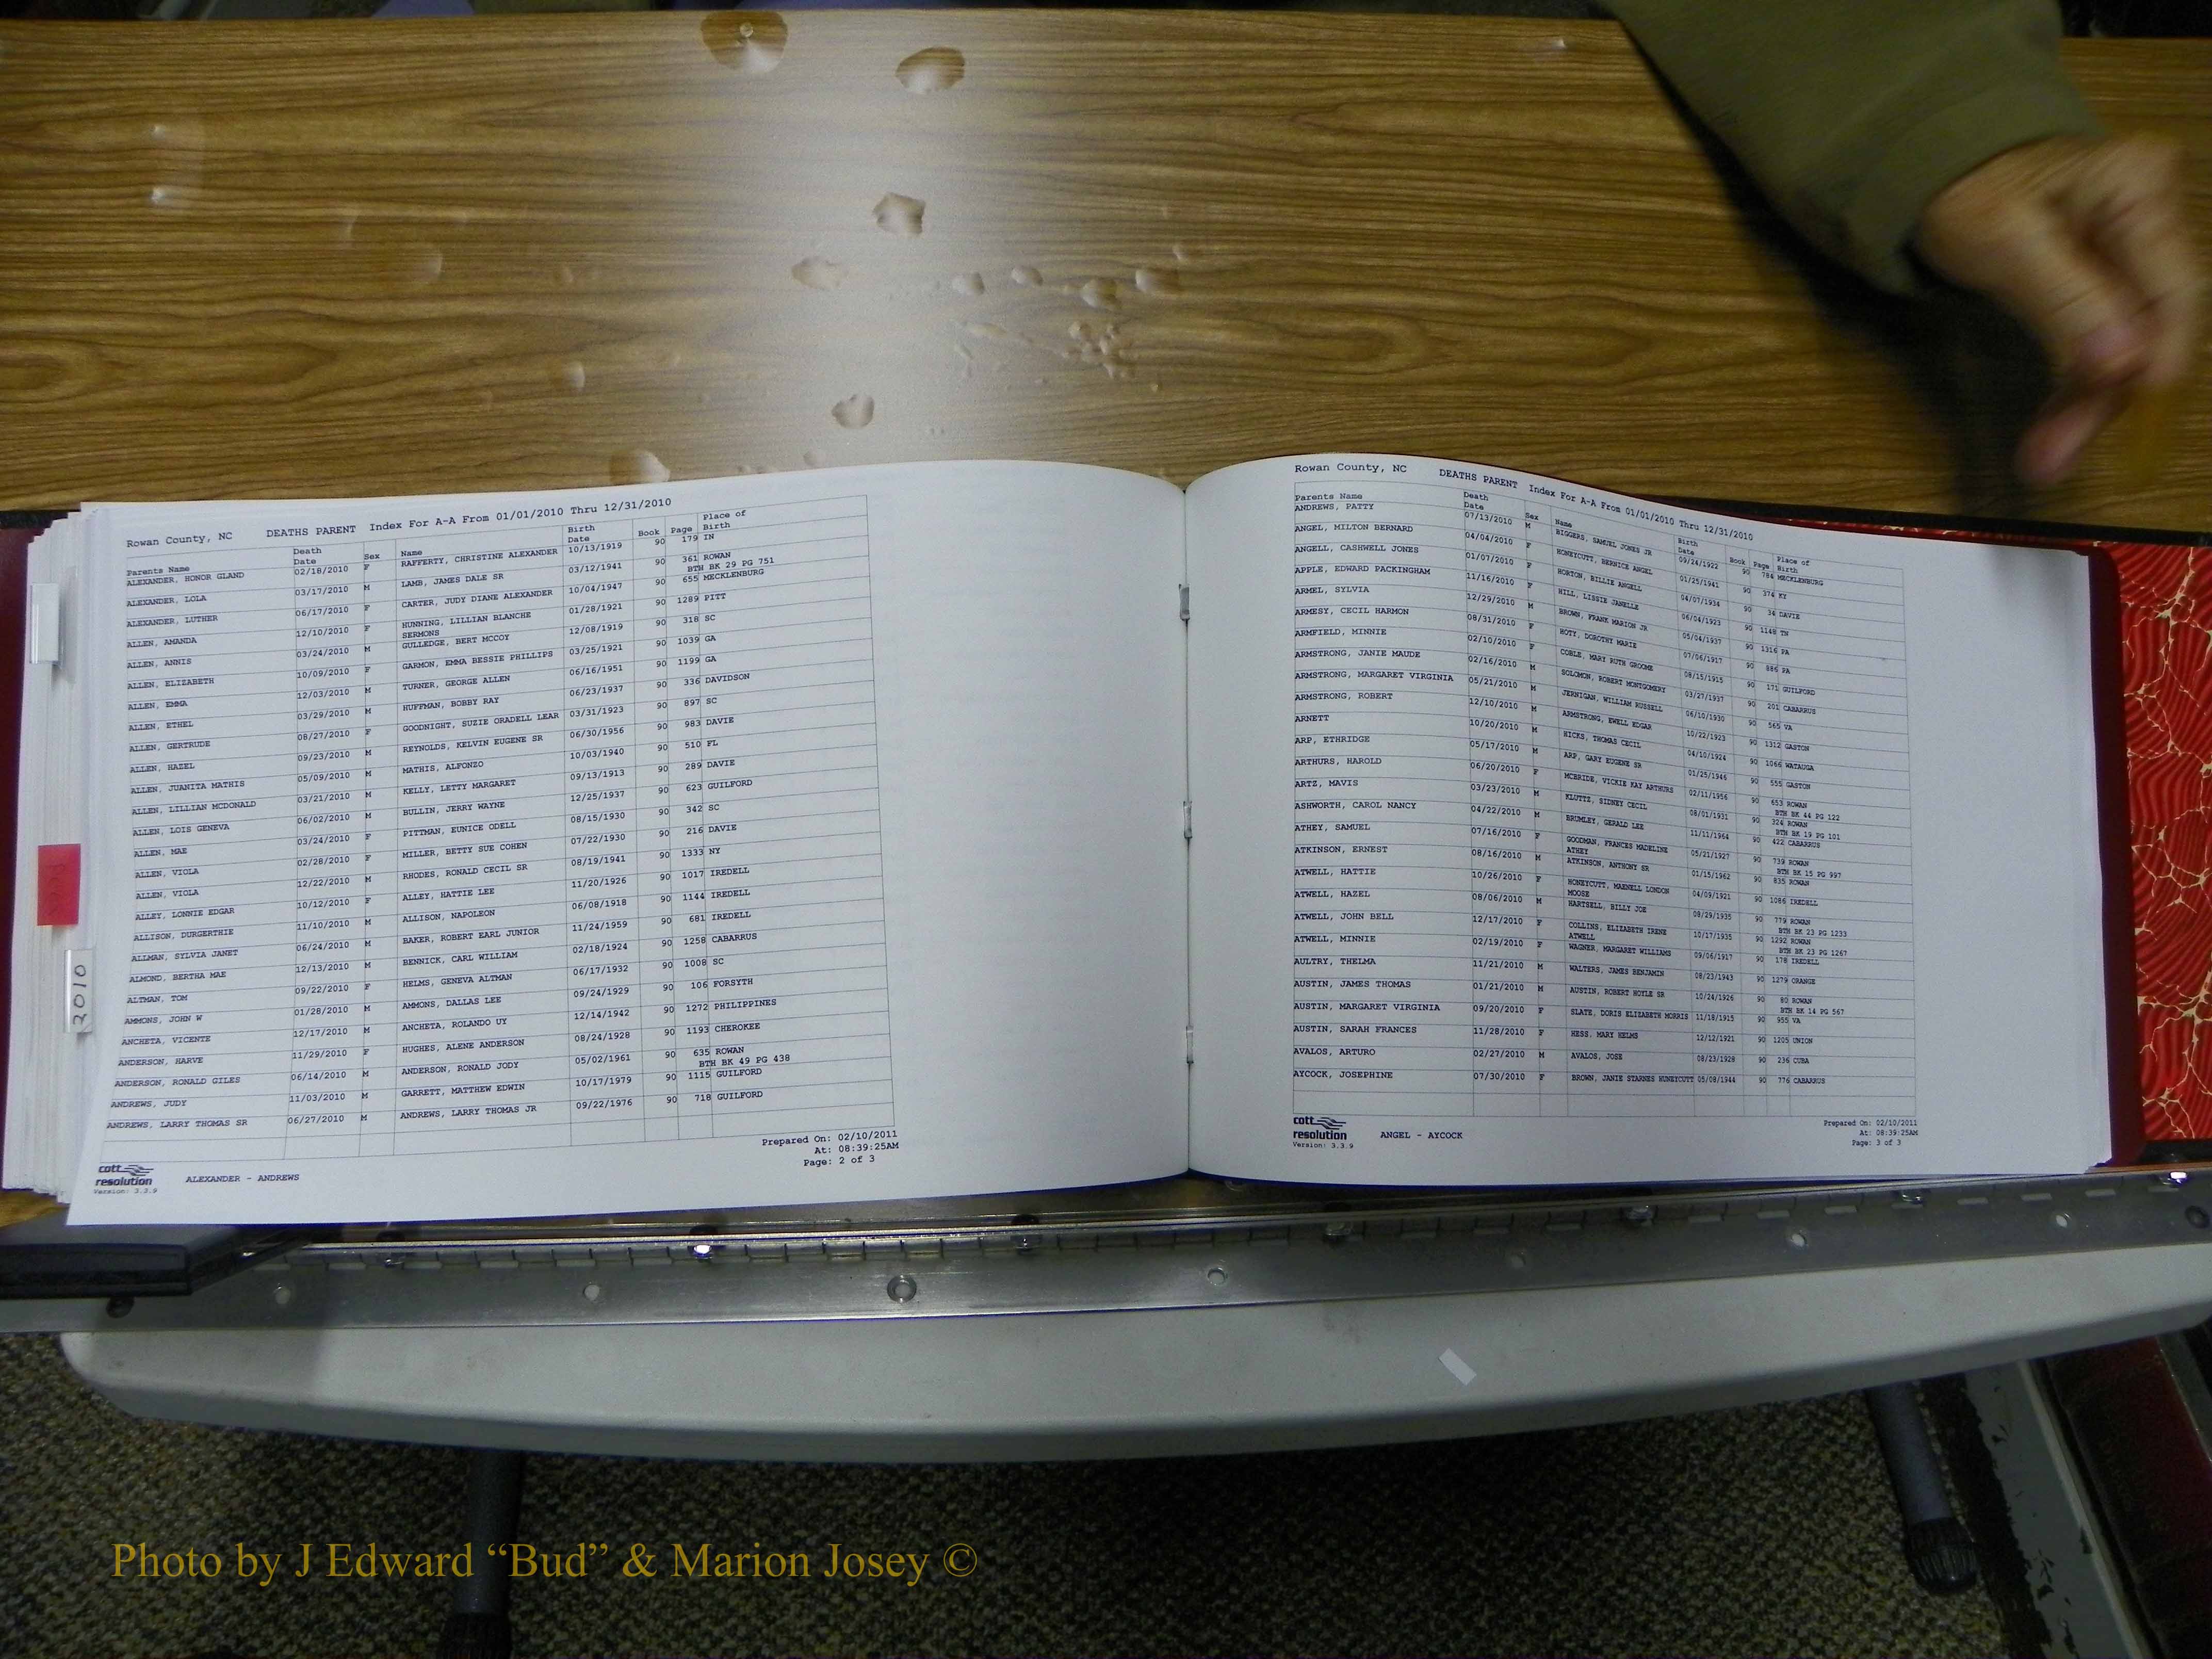 Rowan County, NC DEATHS PARENT Index For A-A From 01/01/2010 Thru 12/31/2010
Parents Name Death Date Sex Name Birth Date Book Page Place of Birth
ALEXANDER, HONOR GLAND 02/18/2010 F RAFFERTY, CHRISTINE ALEXANDER 10/13/1919 90 179 IN
ALEXANDER, LOLA 03/17/2010 M LAMB, JAMES DALE SR 03/12/1941 90 361 ROWAN
BTH BK 29 PG 751
ALEXANDER, LUTHER 06/17/2010 F CARTER, JUDY DIANE ALEXANDER 10/04/1947 90 655 MECKLENBURG
ALLEN, AMANDA 12/10/2010 F HUNNING, LILLIAN BLANCHE 01/28/1921 90 1289 PITT
SERMONS
ALLEN, ANNIS 03/24/2010 M GULLEDGE, BERT MCCOY 12/08/1919 90 318 SC
ALLEN, ELIZABETH 10/09/2010 F GARMON, EMMA BESSIE PHILLIPS 03/25/1921 90 1039 GA
ALLEN, EMMA 12/03/2010 M TURNER, GEORGE ALLEN 06/16/1951 90 1199 GA
ALLEN, ETHEL 03/29/2010 M HUFFMAN, BOBBY RAY 06/23/1937 90 336 DAVIDSON
ALLEN, GERTRUDE 08/27/2010 F GOODNIGHT, SUZIE ORADELL LEAR 03/31/1923 90 897 SC
ALLEN, HAZEL 09/23/2010 M REYNOLDS, KELVIN EUGENE SR 06/30/1956 90 983 DAVIE
ALLEN, JUANITA MATHIS 05/09/2010 M MATHIS, ALFONZO 10/03/1940 90 510 FL
ALLEN, LILLIAN MCDONALD 03/21/2010 M KELLY, LETTY MARGARET 09/13/1913 90 289 DAVIE
ALLEN, LOIS GENEVA 06/02/2010 M BULLIN, JERRY WAYNE 12/25/1937 90 623 GUILFORD
ALLEN, MAE 03/24/2010 F PITTMAN, EUNICE ODELL 08/15/1930 90 342 SC
ALLEN, VIOLA 02/28/2010 F MILLER, BETTY SUE COHEN 07/22/1930 90 216 DAVIE
ALLEN, VIOLA 12/22/2010 M RHODES, RONALD CECIL SR 08/19/1941 90 1333 NY
ALLEY, LONNIE EDGAR 10/12/2010 F ALLEY, HATTIE LEE 11/20/1926 90 1017 IREDELL
ALLISON, DURGERTHIE 11/10/2010 M ALLISON, NAPOLEON 06/08/1918 90 1144 IREDELL
ALLMAN, SYLVIA JANET 06/24/2010 M BAKER, ROBERT EARL JUNIOR 11/24/1959 90 681 IREDELL
ALMOND, BERTHA MAE 12/13/2010 M BENNICK, CARL WILLIAM 02/18/1924 90 1258 CABARRUS
ALTMAN, TOM 09/22/2010 F HELMS, GENEVA ALTMAN 06/17/1932 90 1008 SC
AMMONS, JOHN W 01/28/2010 M AMMONS, DALLAS LEE 09/24/1929 90 106 FORSYTH
ANCHETA, VICENTE 12/17/2010 M ANCHETA, ROLANDO UY 12/14/1942 90 1272 PHILIPPINES
ANDERSON, HARVE 11/29/2010 F HUGHES, ALENE ANDERSON 08/24/1928 90 1193 CHEROKEE
ANDERSON, RONALD GILES 06/14/2010 M ANDERSON, RONALD JODY 05/02/1961 90 635 ROWAN
BTH BK 49 PG 438
ANDREWS, JUDY 11/03/2010 M GARRETT, MATTHEW EDWIN 10/17/1979 90 1115 GUILFORD
ANDREWS, LARRY THOMAS SR 06/27/2010 M ANDREWS, LARRY THOMAS JR 09/22/1976 90 718 GUILFORD
Prepared On: 02/10/2011
At: 08:39:25AM
Page: 2 of 3
cott
resolution
Version: 3.3.9
ALEXANDER - ANDREWS
2010
Rowan County, NC DEATHS PARENT Index For A-A From 01/01/2010 Thru 12/31/2010
Parents Name Death Date Sex Name Birth Date Book Page Place of Birth
ANDREWS, PATTY 07/13/2010 M BIGGERS, SAMUEL JONES JR 09/24/1922 90 784 MECKLENBURG
ANGEL, MILTON BERNARD 04/04/2010 F HONEYCUTT, BERNICE ANGEL 01/25/1941 90 374 KY
ANGELL, CASHWELL JONES 01/07/2010 F HORTON, BILLIE ANGELL 04/07/1934 90 34 DAVIE
APPLE, EDWARD PACKINGHAM 11/16/2010 F HILL, LISSIE JANELLE 06/04/1923 90 1148 TN
ARMEL, SYLVIA 12/29/2010 M BROWN, FRANK MARION JR 05/04/1937 90 1316 PA
ARMESY, CECIL HARMON 08/31/2010 F HOTY, DOROTHY MARIE 07/06/1917 90 886 PA
ARMFIELD, MINNIE 02/10/2010 F COBLE, MARY RUTH GROOME 08/15/1915 90 171 GUILFORD
ARMSTRONG, JANIE MAUDE 02/16/2010 M SOLOMON, ROBERT MONTGOMERY 03/27/1937 90 201 CABARRUS
ARMSTRONG, MARGARET VIRGINIA 05/21/2010 M JERNIGAN, WILLIAM RUSSELL 06/10/1930 90 565 VA
ARMSTRONG, ROBERT 12/10/2010 M ARMSTRONG, EWELL EDGAR 10/22/1923 90 1312 GASTON
ARNETT 10/20/2010 M HICKS, THOMAS CECIL 04/10/1924 90 1066 WATAUGA
ARP, ETHRIDGE 05/17/2010 M ARP, GARY EUGENE SR 01/25/1946 90 555 GASTON
ARTHURS, HAROLD 06/20/2010 F MCBRIDE, VICKIE KAY ARTHURS 02/11/1956 90 653 ROWAN
BTH BK 44 PG 122
ARTZ, MAVIS 03/23/2010 M KLUTTZ, SIDNEY CECIL 08/01/1931 90 324 ROWAN
BTH BK 19 PG 101
ASHWORTH, CAROL NANCY 04/22/2010 M BRUMLEY, GERALD LEE 11/11/1964 90 422 CABARRUS
ATHEY, SAMUEL 07/16/2010 F GOODMAN, FRANCES MADELINE 05/21/1927 90 739 ROWAN
ATHEY BTH BK 15 PG 997
ATKINSON, ERNEST 08/16/2010 M ATKINSON, ANTHONY SR 01/15/1962 90 835 ROWAN
ATWELL, HATTIE 10/26/2010 F HONEYCUTT, MAENELL LONDON 04/09/1921 90 1086 IREDELL
MOOSE
ATWELL, HAZEL 08/06/2010 M HARTSELL, BILLY JOE 08/29/1935 90 779 ROWAN
BTH BK 23 PG 1233
ATWELL, JOHN BELL 12/17/2010 F COLLINS, ELIZABETH IRENE 10/17/1935 90 1292 ROWAN
ATWELL BTH BK 23 PG 1267
ATWELL, MINNIE 02/19/2010 F WAGNER, MARGARET WILLIAMS 09/06/1917 90 178 IREDELL
AULTRY, THELMA 11/21/2010 M WALTERS, JAMES BENJAMIN 08/23/1943 90 1279 ORANGE
AUSTIN, JAMES THOMAS 01/21/2010 M AUSTIN, ROBERT HOYLE SR 10/24/1926 90 80 ROWAN
BTH BK 14 PG 567
AUSTIN, MARGARET VIRGINIA 09/20/2010 F SLATE, DORIS ELIZABETH MORRIS 11/18/1915 90 955 VA
AUSTIN, SARAH FRANCES 11/28/2010 F HESS, MARY HELMS 12/12/1921 90 1205 UNION
AVALOS, ARTURO 02/27/2010 M AVALOS, JOSE 08/23/1928 90 236 CUBA
AYCOCK, JOSEPHINE 07/30/2010 F BROWN, JANIE STARNES HUNEYCUTT 05/08/1944 90 776 CABARRUS
Prepared On: 02/10/2011
At: 08:39:25AM
Page: 3 of 3
cott
resolution
Version: 3.3.9
ANGEL - AYCOCK
Photo by J Edward “Bud” & Marion Josey ©